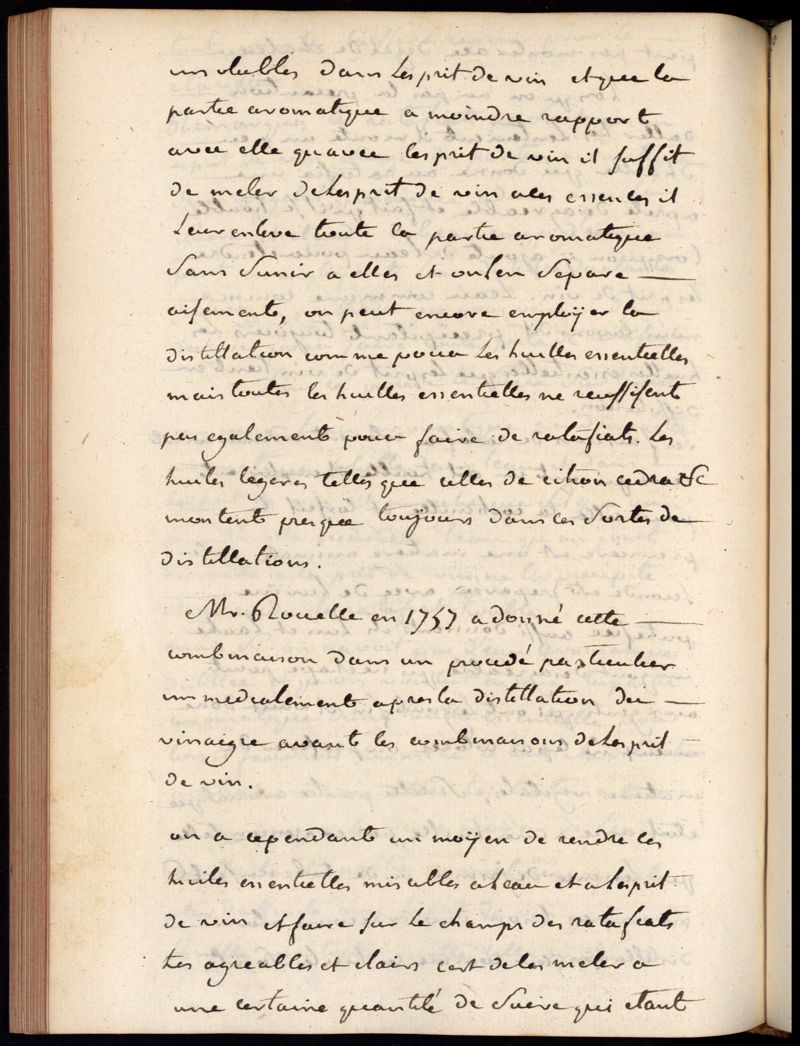 insolubles dans Lesprit de vin et que la
partie aromatique a moindre rapport
avec elle quavec lesprit de vin il suffit
de meler de Lesprit de vin a ces essences il
Leur enleve toute la partie aromatique
Sans S'unir a elles et on len Separe —
aisement, on peut encore employer la
distillation comme pour Les huilles essentielles
mais toutes les huilles essentielles ne reussissent
pas egalement pour faire de ratafiats. Les
huiles legeres telles que celles de citron cedra &c
montent presque toujours dans ces Sortes de
distillations.
Mr. Rouelle en 1757 a donné cette —
combinaison dans un procedé particulier
immediatement apres la distillation du —
vinaigre avant les combinaisons de Lesprit
de vin.
on a cependant un moÿen de rendre les
huiles essentielles missibles a Leau et a Lesprit
de vin et faire Sur Le champs des ratafiats
tes agreables et clairs cest de les meler a
une certaine quantité de Sucre qui etant